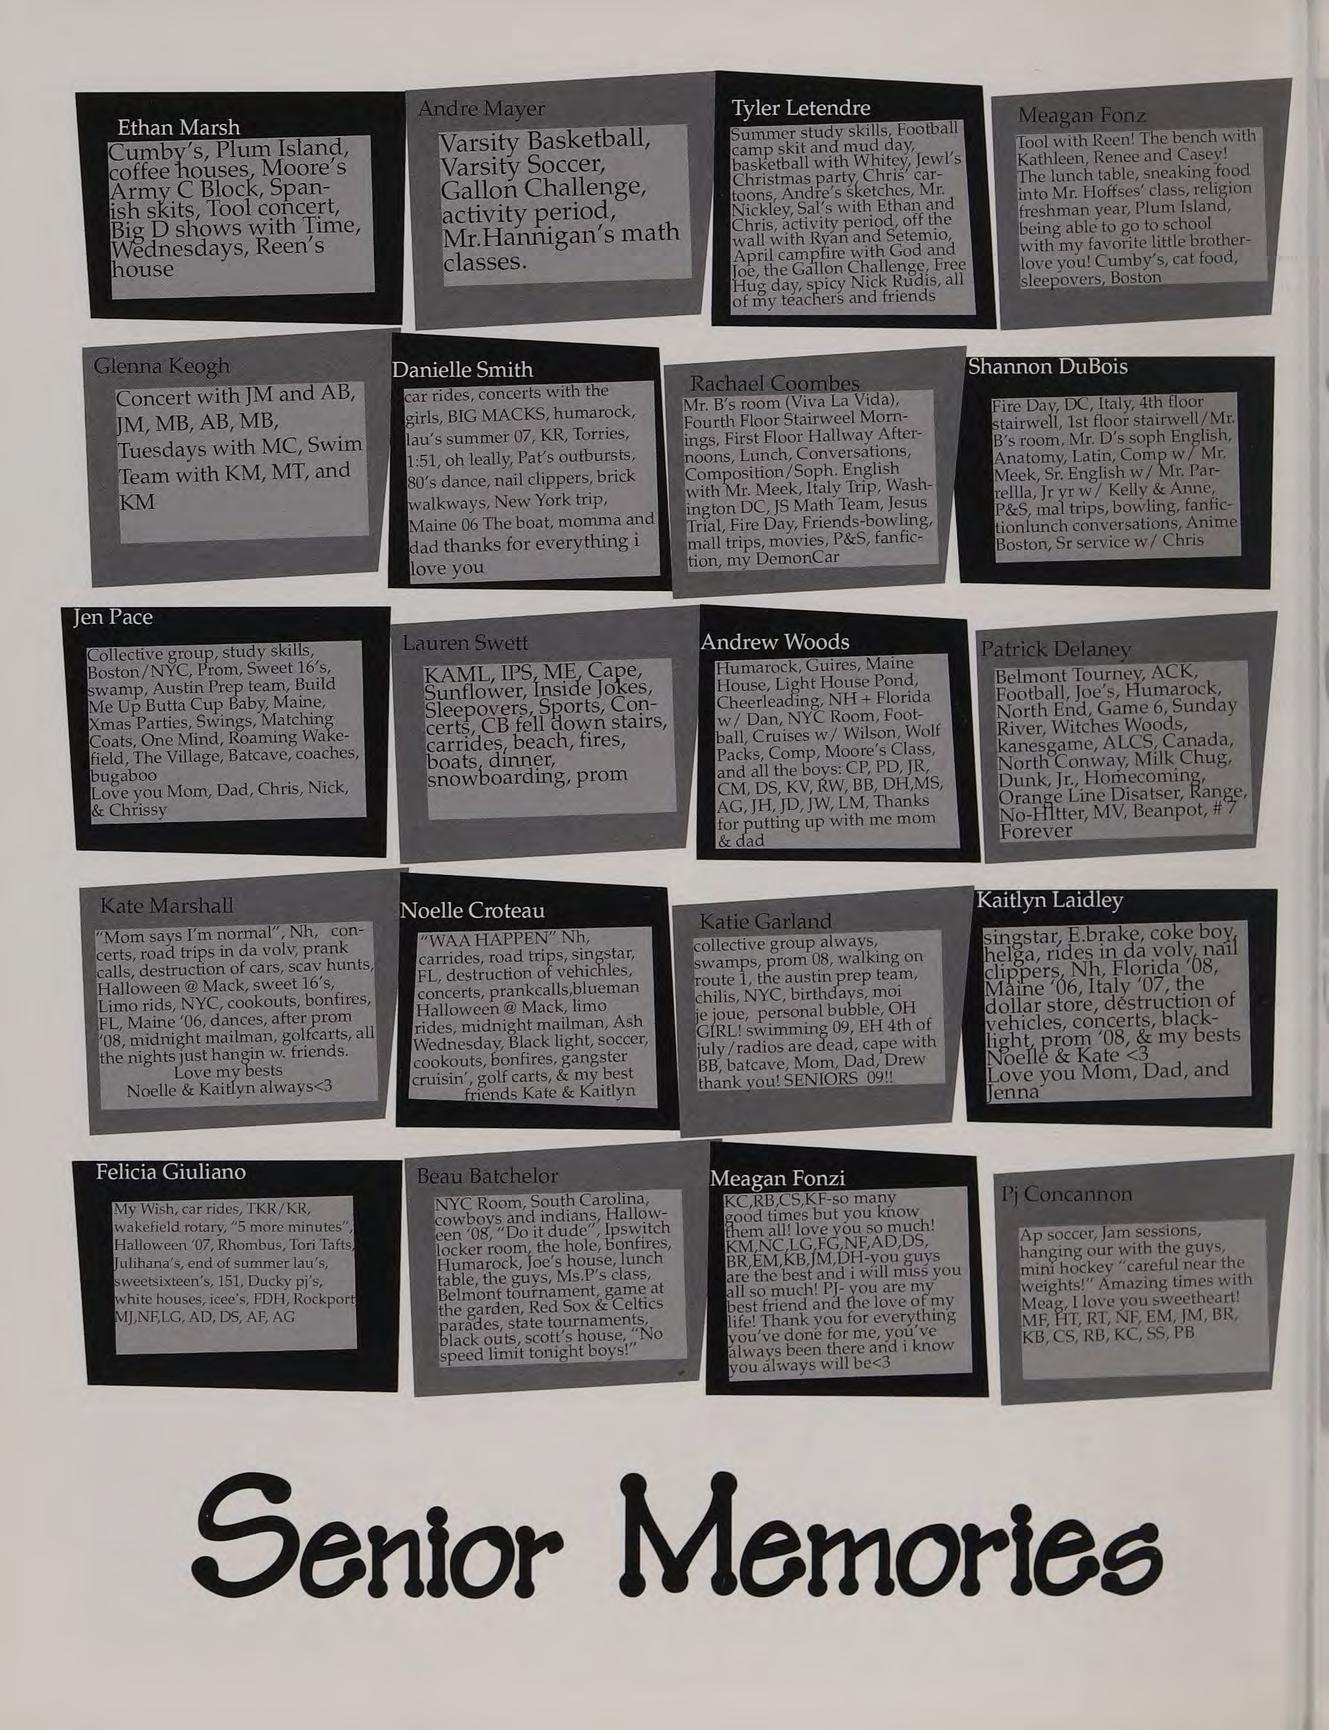 Ethan Marsh
Cumby's, Plum Island,
coffee houses, Moore's
Army C Block, Span-
ish skits, Tool concert,
Big D shows with Time,
Wednesdays, Reen's
house
Andre Mayer
Varsity Basketball,
Varsity Soccer,
Gallon Challenge,
activity period,
Mr.Hannigan's math
classes.
Tyler Letendre
Summer study skills, Football
camp skit and mud day,
basketball with Whitey, Jewl's
Christmas party, Chris' car-
toons, Andre's sketches, Mr.
Nickley, Sal's with Ethan and
Chris, activity period, off the
wall with Ryan and Setemio,
April campfire with God and
Joe, the Gallon Challenge, Free
Hug day, spicy Nick Rudis, all
of my teachers and friends
Meagan Fonz
Tool with Reen! The bench with
Kathleen, Renee and Casey!
The lunch table, sneaking food
into Mr. Hoffses' class, religion
freshman year, Plum Island,
being able to go to school
with my favorite little brother-
love you! Cumby's, cat food,
sleepovers, Boston
Glenna Keogh
Concert with JM and AB,
JM, MB, AB, MB,
Tuesdays with MC, Swim
Team with KM, MT, and
KM
Danielle Smith
car rides, concerts with the
girls, BIG MACKS, humarock,
lau's summer 07, KR, Torries,
1:51, oh leally, Pat's outbursts,
80's dance, nail clippers, brick
walkways, New York trip,
Maine 06 The boat, momma and
dad thanks for everything i
love you
Rachael Coombes
Mr. B's room (Viva La Vida),
Fourth Floor Stairweel Morn-
ings, First Floor Hallway After-
noons, Lunch, Conversations,
Composition/Soph. English
with Mr. Meek, Italy Trip, Wash-
ington DC, JS Math Team, Jesus
Trial, Fire Day, Friends-bowling,
mall trips, movies, P&S, fanfic-
tion, my DemonCar
Shannon DuBois
Fire Day, DC, Italy, 4th floor
stairwell, 1st floor stairwell/Mr.
B's room, Mr. D's soph English,
Anatomy, Latin, Comp w/ Mr.
Meek, Sr. English w/ Mr. Par-
rellla, Jr yr w/ Kelly & Anne,
P&S, mal trips, bowling, fanfic-
tionlunch conversations, Anime
Boston, Sr service w/ Chris
Jen Pace
Collective group, study skills,
Boston/NYC, Prom, Sweet 16's,
swamp, Austin Prep team, Build
Me Up Butta Cup Baby, Maine,
Xmas Parties, Swings, Matching
Coats, One Mind, Roaming Wake-
field, The Village, Batcave, coaches,
bugaboo
Love you Mom, Dad, Chris, Nick,
& Chrissy
Lauren Swett
KAML, IPS, ME, Cape,
Sunflower, Inside Jokes,
Sleepovers, Sports, Con-
certs, CB fell down stairs,
carrides, beach, fires,
boats, dinner,
snowboarding, prom
Andrew Woods
Humarock, Guires, Maine
House, Light House Pond,
Cheerleading, NH + Florida
w/ Dan, NYC Room, Foot-
ball, Cruises w/ Wilson, Wolf
Packs, Comp, Moore's Class,
and all the boys: CP, PD, JR,
CM, DS, KV, RW, BB, DH,MS,
AG, JH, JD, JW, LM, Thanks
for putting up with me mom
& dad
Patrick Delaney
Belmont Tourney, ACK,
Football, Joe's, Humarock,
North End, Game 6, Sunday
River, Witches Woods,
kanesgame, ALCS, Canada,
North Conway, Milk Chug,
Dunk, Jr., Homecoming,
Orange Line Disatser, Range,
No-HItter, MV, Beanpot, # 7
Forever
Kate Marshall
"Mom says I'm normal", Nh, con-
certs, road trips in da volv, prank
calls, destruction of cars, scav hunts,
Halloween @ Mack, sweet 16's,
Limo rids, NYC, cookouts, bonfires,
FL, Maine '06, dances, after prom
'08, midnight mailman, golfcarts, all
the nights just hangin w. friends.
Love my bests
Noelle & Kaitlyn always<3
Noelle Croteau
"WAA HAPPEN" Nh,
carrides, road trips, singstar,
FL, destruction of vehichles,
concerts, prankcalls,blueman
Halloween @ Mack, limo
rides, midnight mailman, Ash
Wednesday, Black light, soccer,
cookouts, bonfires, gangster
cruisin', golf carts, & my best
friends Kate & Kaitlyn
Katie Garland
collective group always,
swamps, prom 08, walking on
route 1, the austin prep team,
chilis, NYC, birthdays, moi
je joue, personal bubble, OH
GIRL! swimming 09, EH 4th of
july/radios are dead, cape with
BB, batcave, Mom, Dad, Drew
thank you! SENIORS 09!!
Kaitlyn Laidley
singstar, E.brake, coke boy,
helga, rides in da volv, nail
clippers, Nh, Florida '08,
Maine '06, Italy '07, the
dollar store, destruction of
vehicles, concerts, black-
light, prom '08, & my bests
Noelle & Kate <3
Love you Mom, Dad, and
Jenna
Felicia Giuliano
My Wish, car rides, TKR/KR,
wakefield rotary, "5 more minutes",
Halloween '07, Rhombus, Tori Tafts,
Julihana's, end of summer lau's,
sweetsixteen's, 151, Ducky pj's,
white houses, icee's, FDH, Rockport
MJ,NF,LG, AD, DS, AF, AG
Beau Batchelor
NYC Room, South Carolina,
cowboys and indians, Hallow-
een '08, "Do it dude", Ipswitch
locker room, the hole, bonfires,
Humarock, Joe's house, lunch
table, the guys, Ms.P's class,
Belmont tournament, game at
the garden, Red Sox & Celtics
parades, state tournaments,
black outs, scott's house, "No
speed limit tonight boys!"
Meagan Fonzi
KC,RB,CS,KF-so many
good times but you know
them all! love you so much!
KM,NC,LG,FG,NF,AD,DS,
BR,EM,KB,JM,DH-you guys
are the best and i will miss you
all so much! PJ- you are my
best friend and the love of my
life! Thank you for everything
you've done for me, you've
always been there and i know
you always will be<3
Pj Concannon
Ap soccer, Jam sessions,
hanging our with the guys,
mini hockey "careful near the
weights!" Amazing times with
Meag, I love you sweetheart!
MF, HT, RT, NF, EM, JM, BR,
KB, CS, RB, KC, SS, PB
Senior Memories